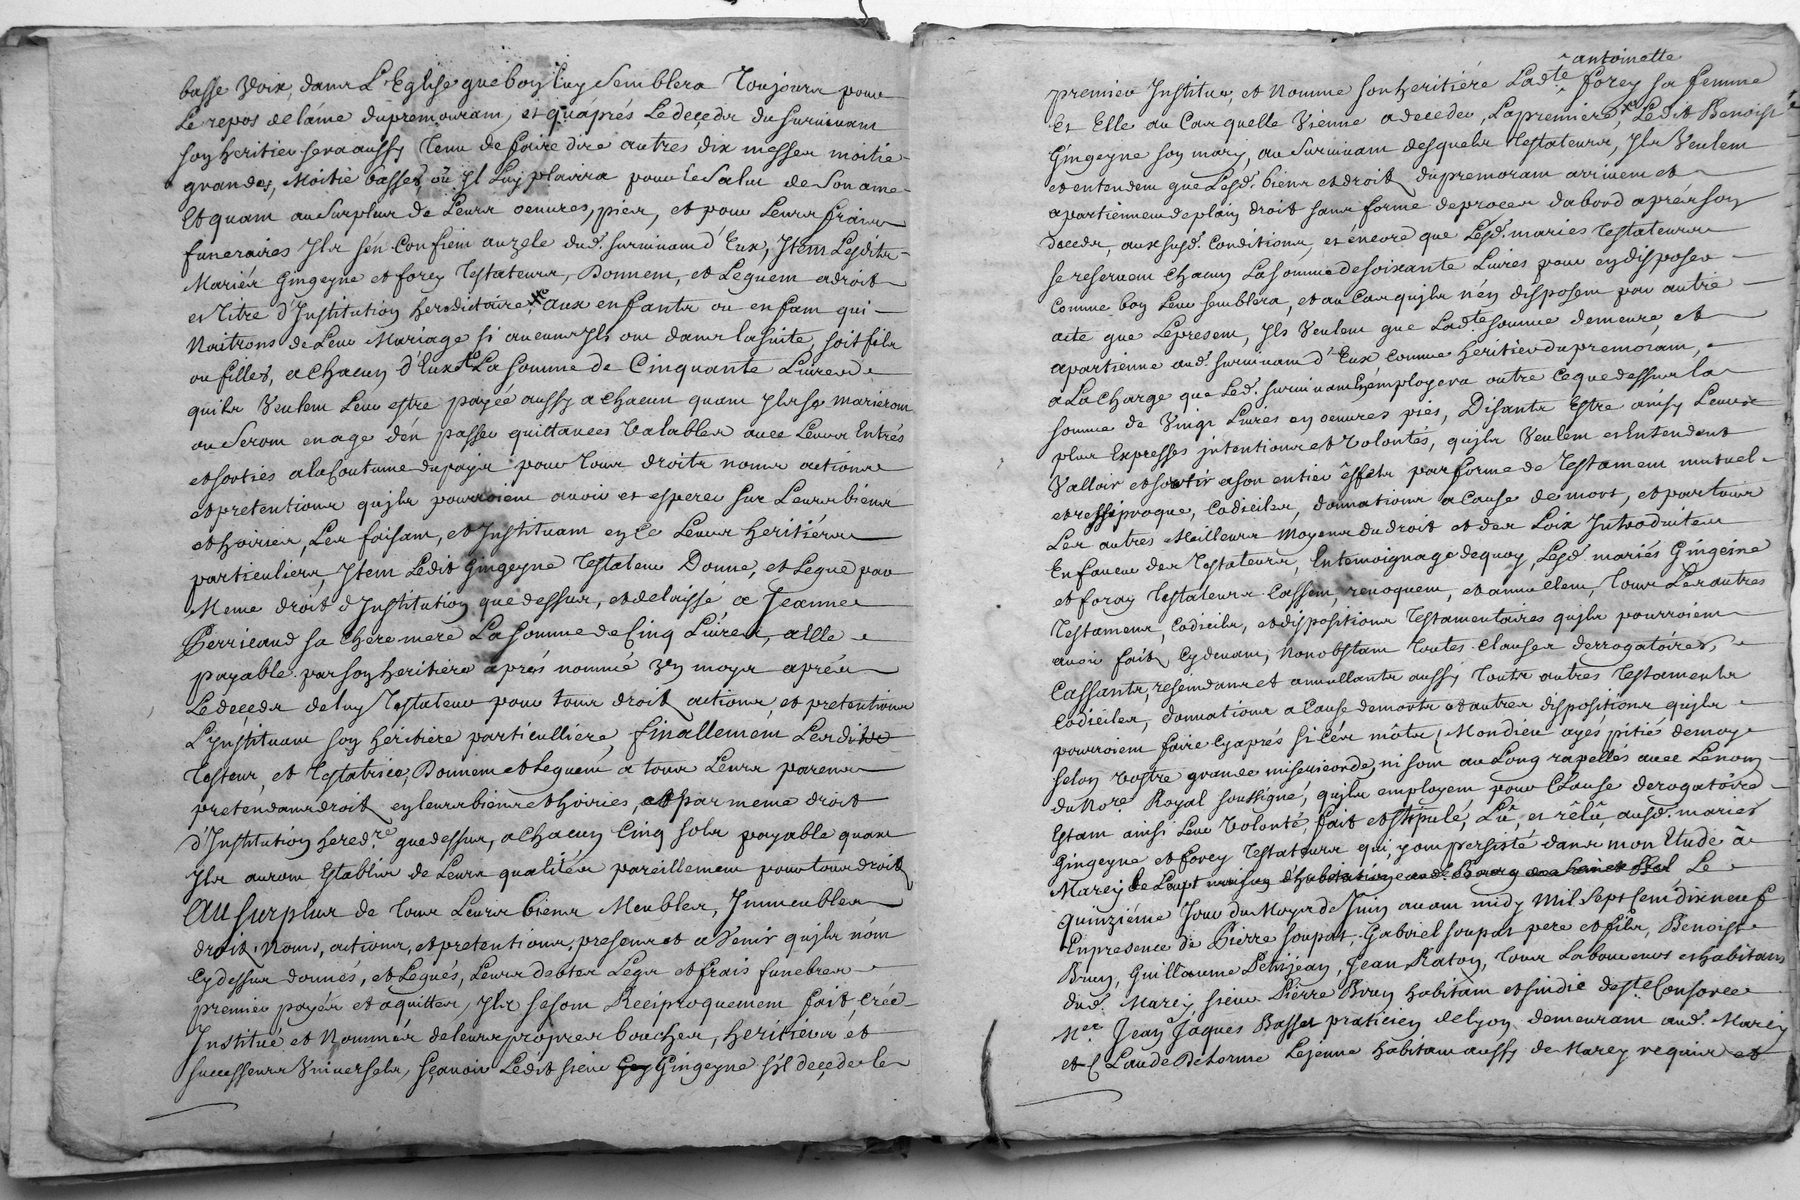 basse Voix, dans L'Eglise que bon luy Semblera Toujours pour
Le repos de lâme du premourant, et qu'áprés Le deçeds du survivant
son heritier sera aussy Tenu de faire dire autres dix messes moitié
grandes, Moitié basses, où Il Luy plairra pour le Salut de Son ame
Et quant au Surplus de Leurs oeuvres, pies, et pour Leurs frais
funeraires Ils sén Confient au zele dud. survivant d'Eux, Item Lesdits
Mariés Gingeyne et forey Testateurs, Donnent, et Leguent a droit
et Titre d'Institution hereditaire, aux enfants ou enfant qui
Naitront de Leur Mariage si aucuns Ils ont dans la suite, soit fils
ou filles, a Chacun d'Eux La somme de Cinquante Livres
quils Veulent Leur estre payée aussy a Chacun quant Ils se marieront
ou Seront en age dén passer quittances Valables avec Leurs Entrés
et sortiés a la Coutume du pays pour Tous droits noms actions
et pretentions quils pourroient avoir et esperer sur Leurs biens
et hoiries, Les faisant, et Instituant en Ce Leurs heritiérs
particuliers, Item Ledit Gingeyne Testateur Donne, et Legue par
Meme droit d'Institution que dessus, et delaisse, a Jeanne
Perricaud sa Chere mere La somme de Cinq Livres, a Elle
payable par son heritiére áprés nommée 3en moys aprés
Le deçeds de luy Testateur pour tous droit actions, et pretentions
L'Instituant son héritiére particulliére, finallement Lesdits
Testeur, et Testatrice, Donnent et Leguent a tous Leurs parens
pretendans droit en leurs biens et hoiries et par meme droit
d'Institution hered.re que dessus, a Chacun Cinq sols payable quant
Ils auront Establis de Leurs qualités pareillement pour tous droit
Au surplus de Tous Leurs biens Meubles, Immeubles
droit, Noms, actions, et pretentions, presens et a Venir quils nónt
Cy dessus donnés, et Legués, Leurs debtes Legs et frais funebres
premier payés et aquittés, Ils se sont Reciproquement fait, Crée
Institué et Nommés de leurs propres bouches, heritiers et
successeurs Universels, sçavoir Ledit sieur Gingeyne s'il deçede le
antoinette
premier Institue, et Nomme son heritiére Ladte forey sa femme
Et Elle au Cas quelle Vienne a deceder, La premiére, Ledit Benoist
Gingeyne son mary, au Survivant desquels Testateurs, Ils Veulent
et entendent que Lesd. biens et droit du premorant arrivent et
apartiennent de plain droit sans forme de proces dabord aprés son
deceds, aux susd. Conditions, et éncore que Lesd. mariés Testateurs
se reservent Chacun La somme de soixante Livres pour en disposer
Comme bon Leur semblera, et au Cas quils nén disposent par autre
acte que Le present, Ils Veulent que Ladte somme demeure, et
apartienne aud. survivant d'Eux Comme heritier du premorant,
a La Charge que Led. survivant émployera outre Ce que dessus la
somme de Vingt Livres en oeuvres pies, Disants Estre ainsy Leurs
plus Expresses jntentions et Volontés, quils Veulent et Entendent
Valloir et sortir a son entier éffets par forme de Testament mutuel
et reçiproque, Codiciles, donnations a Cause de mort, et par tous
Les autres Meilleurs Moyens du droit et des Loix Introduites
En faveur des Testateurs, En temoignage dequoy, Lesd. mariés Gingeine
et foray Testateurs Cassent, revoquent, et annullent, Tous Les autres
Testamens, Codicils, et dispositions Testamentaires quils pourroient
avoir fait Cydevant, Nonobstant Toutes Clauses derrogatoires,
Cassants, resindans et annullants aussy Touts autres Testaments
Codiciles, donnations a Cause de morts et autres dispositions quils
pourroient faire Cy aprés si Cés môts, Mon dieu ayés pitié de moy
selon Vostre grande misericorde, ni sont au Long rapellés avec Le nom
du Nore Royal soussigné, quils employent pour Clause derogatôire
Estant ainsi Leur Volonté, fait et stipulé, Lû, et rêlû, ausd. mariés
Gingeyne et forey Testateurs qui y ont persisté dans mon Etude â
Marcy Le
Quinziéme Jour du Moys de Juin avant midy Mil Sept Cent dixneuf
En presence de Pierre Soupat, Gabriel Soupat pere et fils, Benoist
Brun, Guillaume Petitjean, Jean Raton, Tous Laboureurs et habitans
dud. Marcy, sieur Pierre Brun habitant et sindic de Ste Consorce
Mer Jean Jaques Basset praticien de Lyon demeurant aud. Marcy
et Claude Delorme Lejeune habitant aussy de Marcy requis et